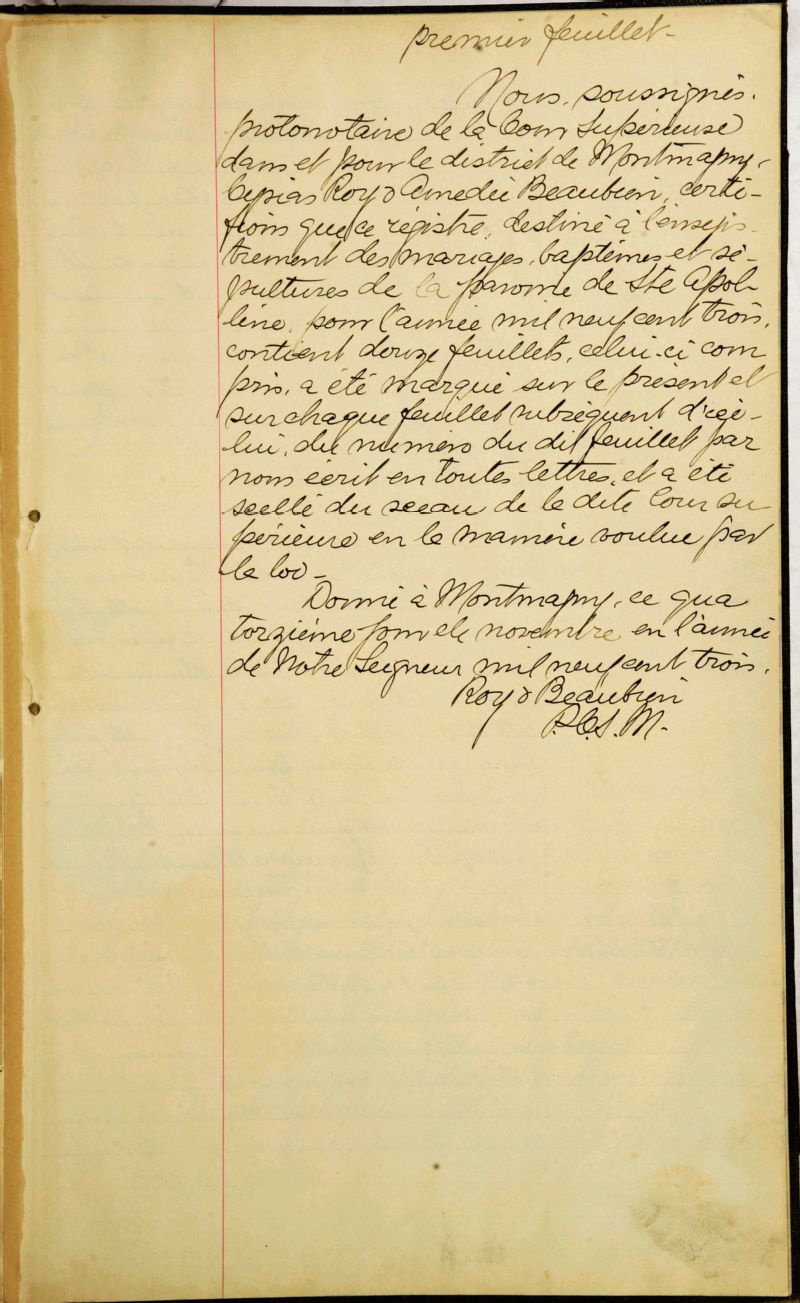 premier feuillet -
Nous, soussignés,
protonotaire de la Cour Superieuse
dans et pour le district de Montmagny,
Roy & Amedée Beaubien, certi-
fions que ce régistre, destiné à l'enregis-
trement des mariages, baptêmes et sé-
pultures de la paroisse de Ste Apol-
line, pour l'année mil neuf cent trois,
contient douze feuillets, celui-ci com
pris, a été marqué sur le présent et
sur chaque feuillet subséquent d'ice-
lui, du numéro du dit feuillet par
nom écrit en toutes lettres, et a été
scellé du sceau de la dite Cour su
périeure en la manière voulue par
la loi -
Donné à Montmagny, ce qua
torzième jour de novembre en l'année
de Notre Seigneur mil neuf cent trois.
Roy & Beaubien
P.C.S.M.